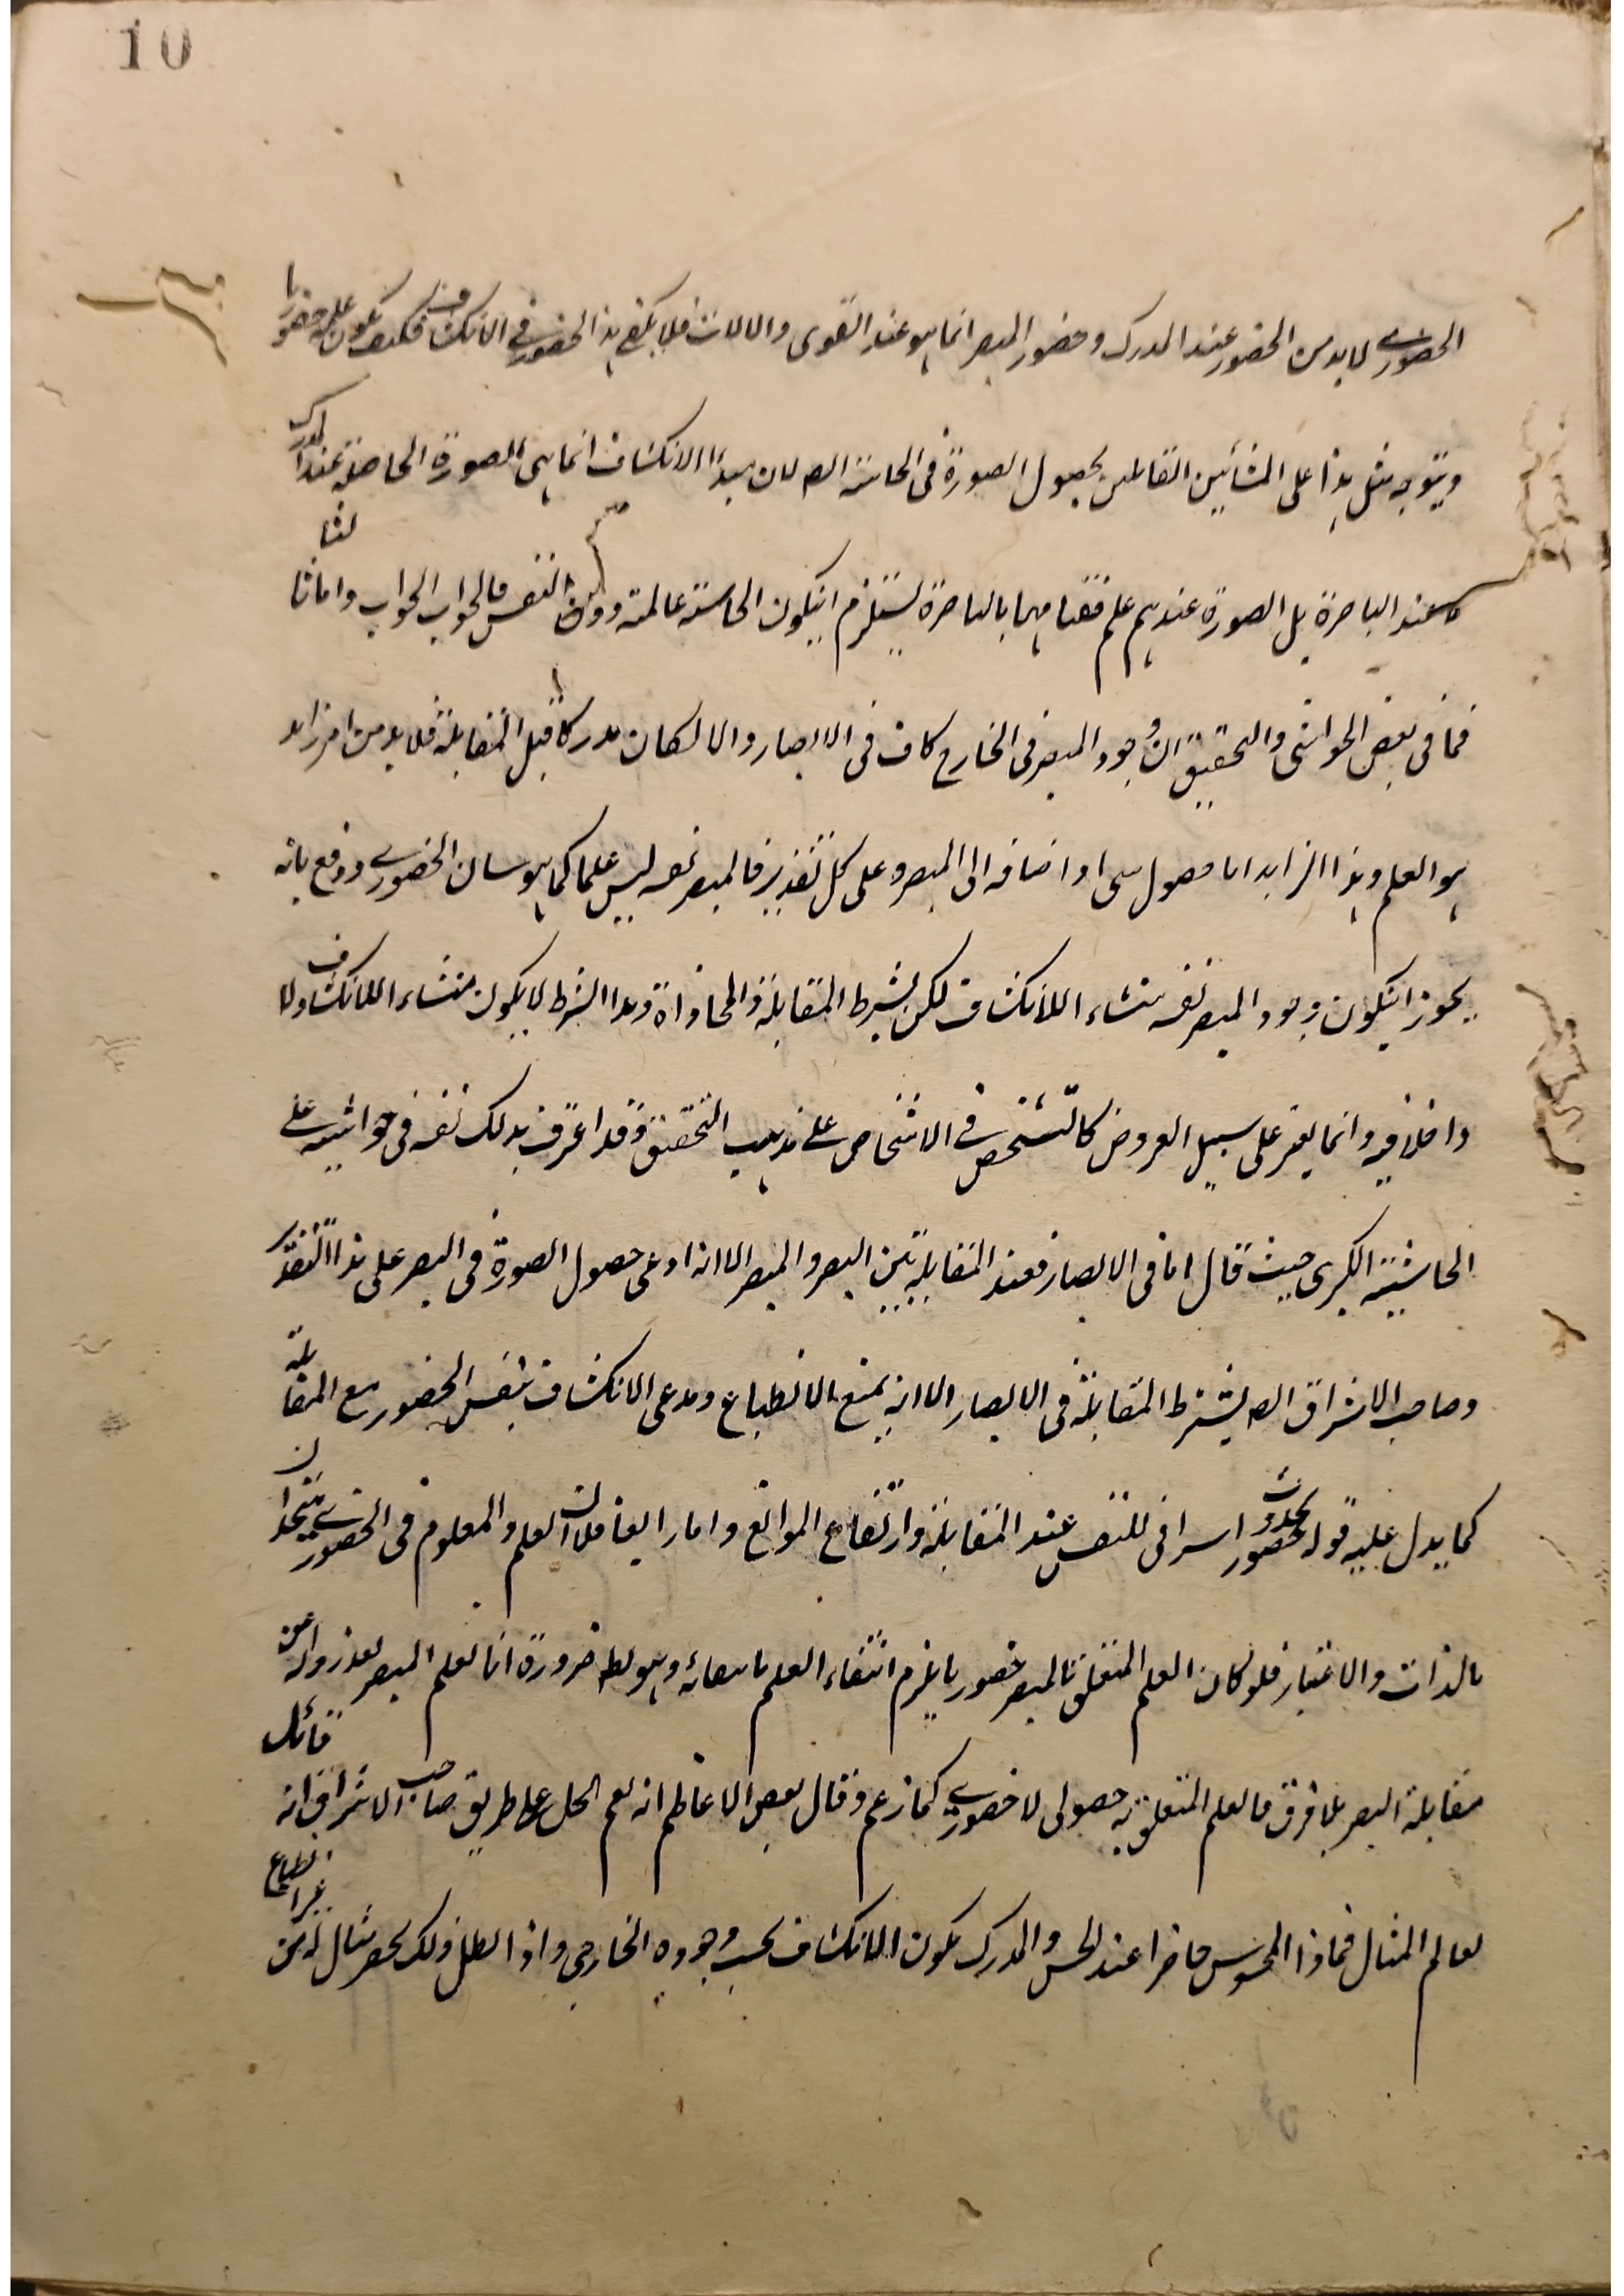 10
الحضوري لا بد من الحضور عند المدرك وحضور المبصر انما هو عند القوى والالات فلا يكفي هذا الحضور في الانكشاف فكيف يكون علمه حضوريا
ويتوجه مثل هذا على المشائين القائلين بحصول الصورة في الحاسة لان مبدا الانكشاف انما هي الصورة الحاصلة عند المدرك
لا عند الباصرة بل الصورة عندهم علم فقيامها بالباصرة يستلزم ان يكون الحاسة عالمة دون النفس فالجواب الجواب واما ثالثا
فما في بعض الحواشي والتحقيق ان وجود المبصر في الخارج كاف في الابصار والا لكان مدركا قبل المقابلة فلا بد من امر زايد
هو العلم وهذا الزايد اما حصول شى او اضافه الى المبصر وعلى كل تقدير فالمبصر نفسه ليس علما كما هو شان الحضوري ودفع بانه
يجوز ان يكون وجود المبصر نفسه منشاء اللانكشاف لكن بشرط المقابلة والمحاذاة وهذا الشرط لا يكون منشاء اللانكشاف ولا
داخلا فيه وانما يعتبر على سبيل العروض كالتشخص في الاشخاص على مذهب التحقيق وقد اعترف بذلك نفسه في حواشيه على
الحاشية الكبرى حيث قال اما في الابصار فعند المقابلة بين البصر والمبصر الا انه ادعى حصول الصورة في البصر على هذا التقدير
وصاحب الاشراق يشترط المقابلة في الابصار الا انه يمنع الانطباع ويدعى الانكشاف بنفس الحضور مع المقابلة
كما يدل عليه قوله يحدث حضور اشراقى للنفس عند المقابلة وارتفاع الموانع واما رابعا فلان العلم والمعلوم في الحضوري يتحدان
بالذات والاعتبار فلو كان العلم المتعلق بالمبصر حضوريا يلزم انتفاء العلم بانتفائه وهو بط ضرورة انا نعلم المبصر بعد زواله عن
مقابلة البصر بلا فرق فالعلم المتعلق به حصولى لا حضوري كما زعم وقال بعض الاعاظم انه نعم الحل على طريق صاحب الاشراق فانه قائل
بعالم المثال فما دام المحسوس حاضرا عند الحس والمدرك يكون الانكشاف بحسب وجوده الخارجى واذا بطل ذلك يحضر مثال له من غير انطباع